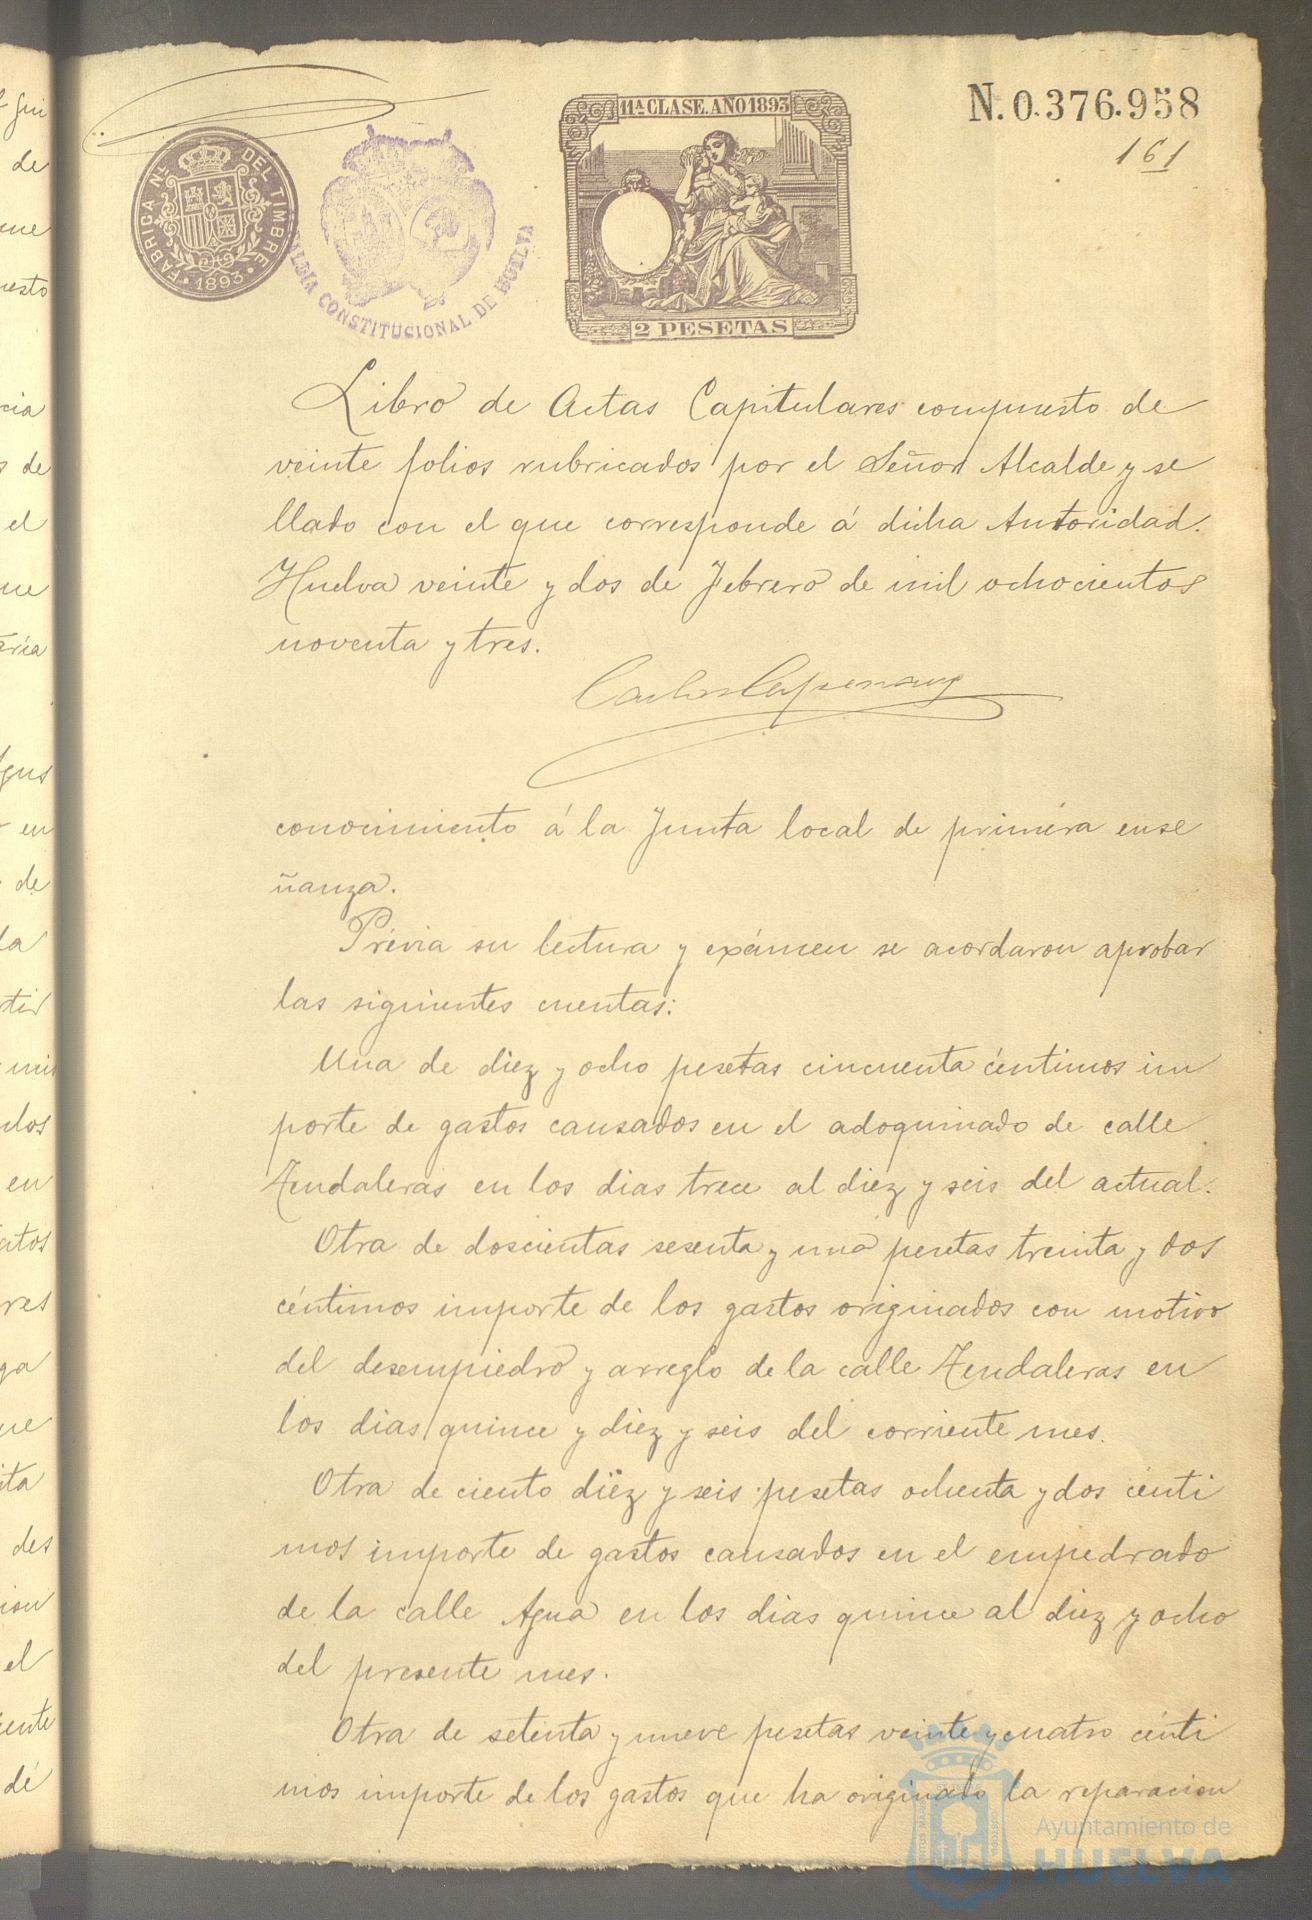 11ª CLASE. AÑO 1893
N. 0.376.958
161
FABRICA NL. DEL TIMBRE
1893
CONSTITUCIONAL DE HUELVA
2 PESETAS
Libro de Actas Capitulares compuesto de
veinte folios rubricados por el Señor Alcalde y se
llado con el que corresponde á dicha Autoridad.
Huelva veinte y dos de Febrero de mil ochocientos
noventa y tres.
conocimiento á la Junta local de primera ense
ñanza.
Prévia su lectura y exámen se acordaron aprobar
las siguientes cuentas:
Una de diez y ocho pesetas cincuenta céntimos im
porte de gastos causados en el adoquinado de calle
Tendaleras en los dias trece al diez y seis del actual.
Otra de doscientas sesenta y una pesetas treinta y dos
céntimos importe de los gastos originados con motivo
del desempiedro y arreglo de la calle Tendaleras en
los dias quince y diez y seis del corriente mes.
Otra de ciento diez y seis pesetas ochenta y dos centi
mos importe de gastos causados en el empedrado
de la calle Agua en los dias quince al diez y ocho
del presente mes.
Otra de setenta y nueve pesetas veinte y cuatro cénti
mos importe de los gastos que ha originado la reparacion
Ayuntamiento de
HUELVA